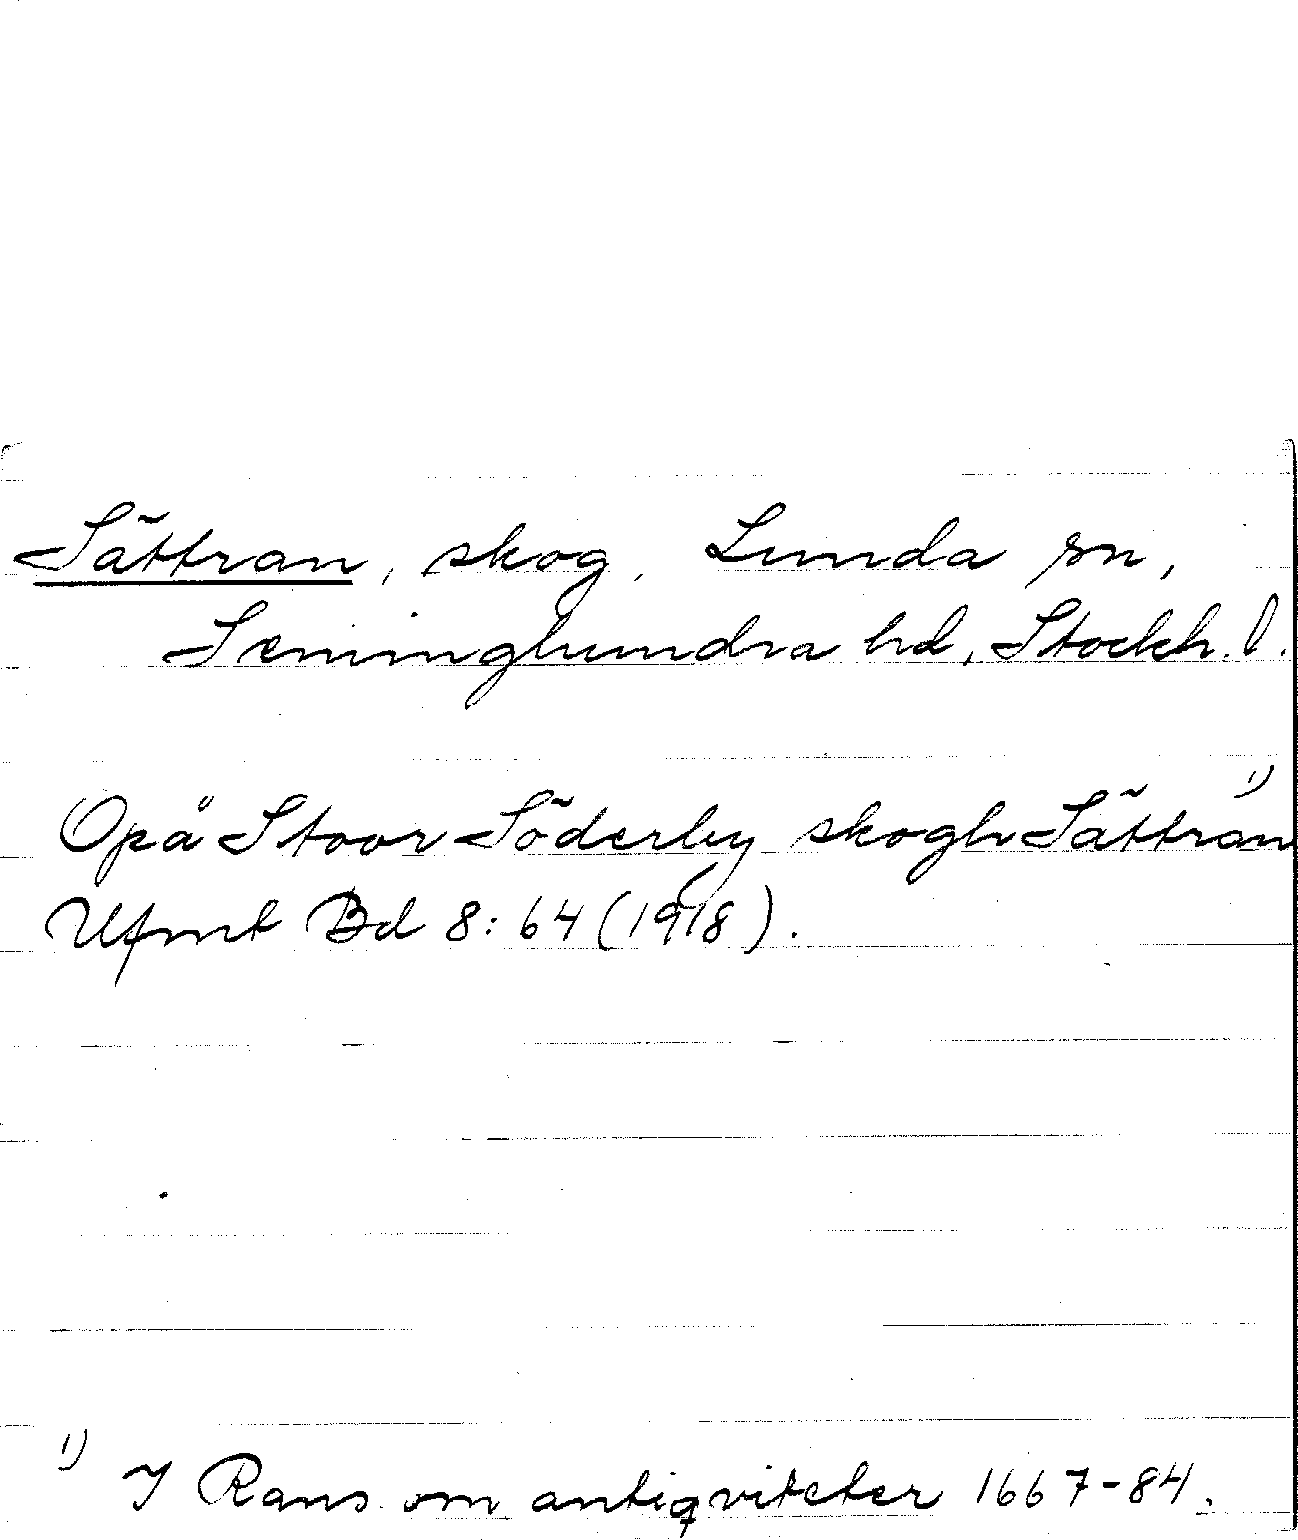 Sättran, skog, Lunda sn,
Seminghundra hd, Stockh. l.
Opå Stoor Söderby skogh Sättran 1)
Ufmt Bd 8: 64 (1918).
1) I Rans. om antiqviteter 1667-84.